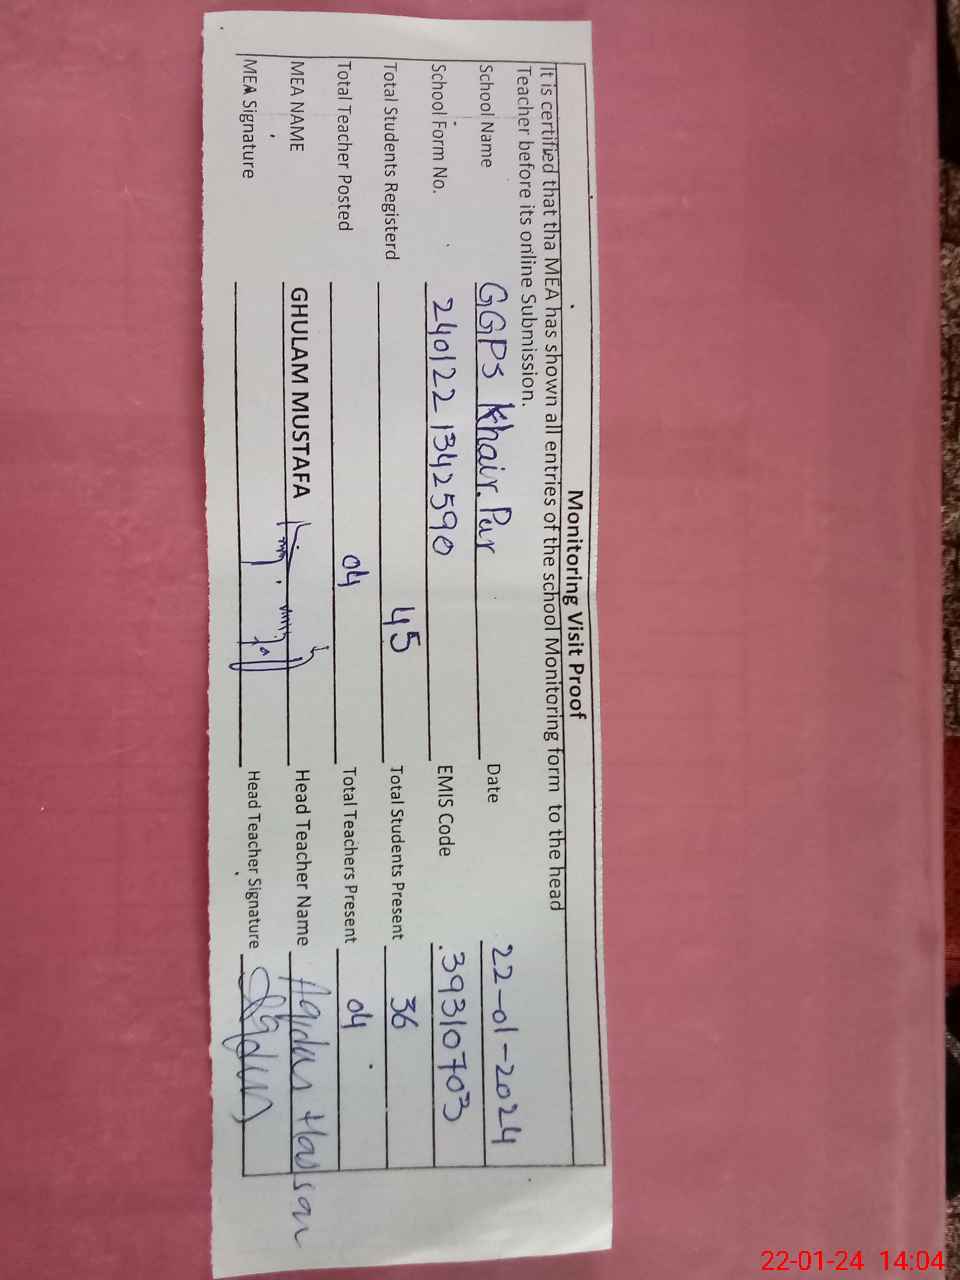 Monitoring Visit Proof
It is certified that tha MEA has shown all entries of the school Monitoring form to the head
Teacher before its online Submission.
School Name GGPS Khair Pur Date 22-01-2024
School Form No. 240122 1342590 EMIS Code 39310703
Total Students Registerd 45 Total Students Present 36
Total Teacher Posted 04 Total Teachers Present 04
MEA NAME GHULAM MUSTAFA Head Teacher Name Hassan
MEA Signature Head Teacher Signature
22-01-24 14:04